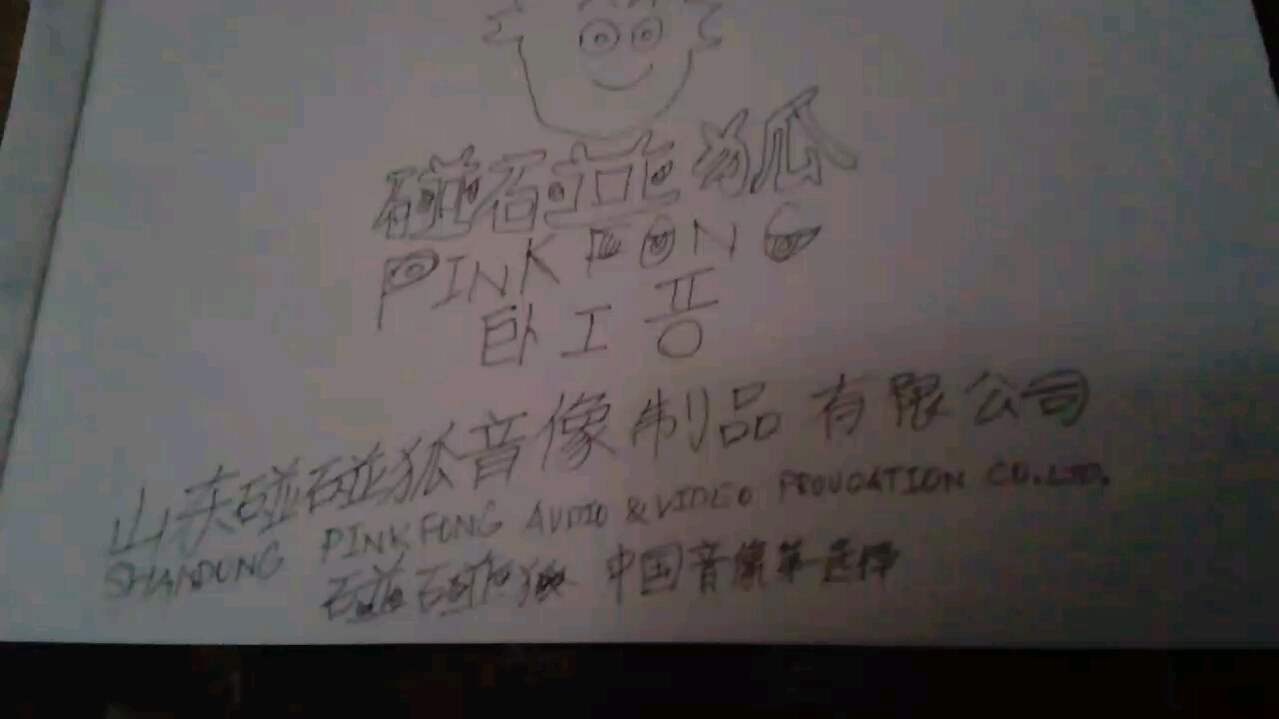 碰碰狐
PINKFONG
핚工퐁
山东碰碰狐音像制品有限公司
SHANDONG PINKFONG AUDIO & VIDEO PROUCATION CO.LTD.
碰碰狐 中国音像第一选择